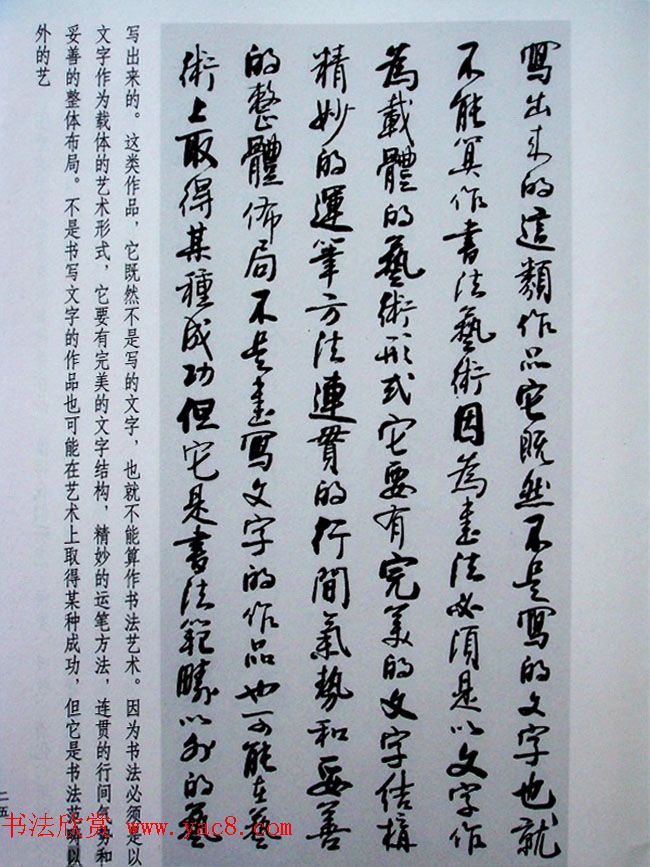 寫出来的這類作品它既然不是寫的文字也就
不能算作書法藝術因為書法必須是以文字作
為載體的藝術形式它要有完美的文字结構
精妙的運筆方法連貫的行間氣勢和妥善
的整體佈局不是書寫文字的作品也可能在藝
術上取得某種成功但它是書法範疇以外的藝
写出来的。这类作品，它既然不是写的文字，也就不能算作书法艺术。因为书法必须是以
文字作为载体的艺术形式，它要有完美的文字结构，精妙的运笔方法，连贯的行间气势和
妥善的整体布局。不是书写文字的作品也可能在艺术上取得某种成功，但它是书法范畴以
外的艺
二五
书法欣赏 www.yac8.com